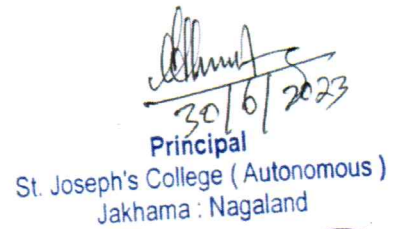 30/6/2023
Principal
St. Joseph's College ( Autonomous )
Jakhama : Nagaland